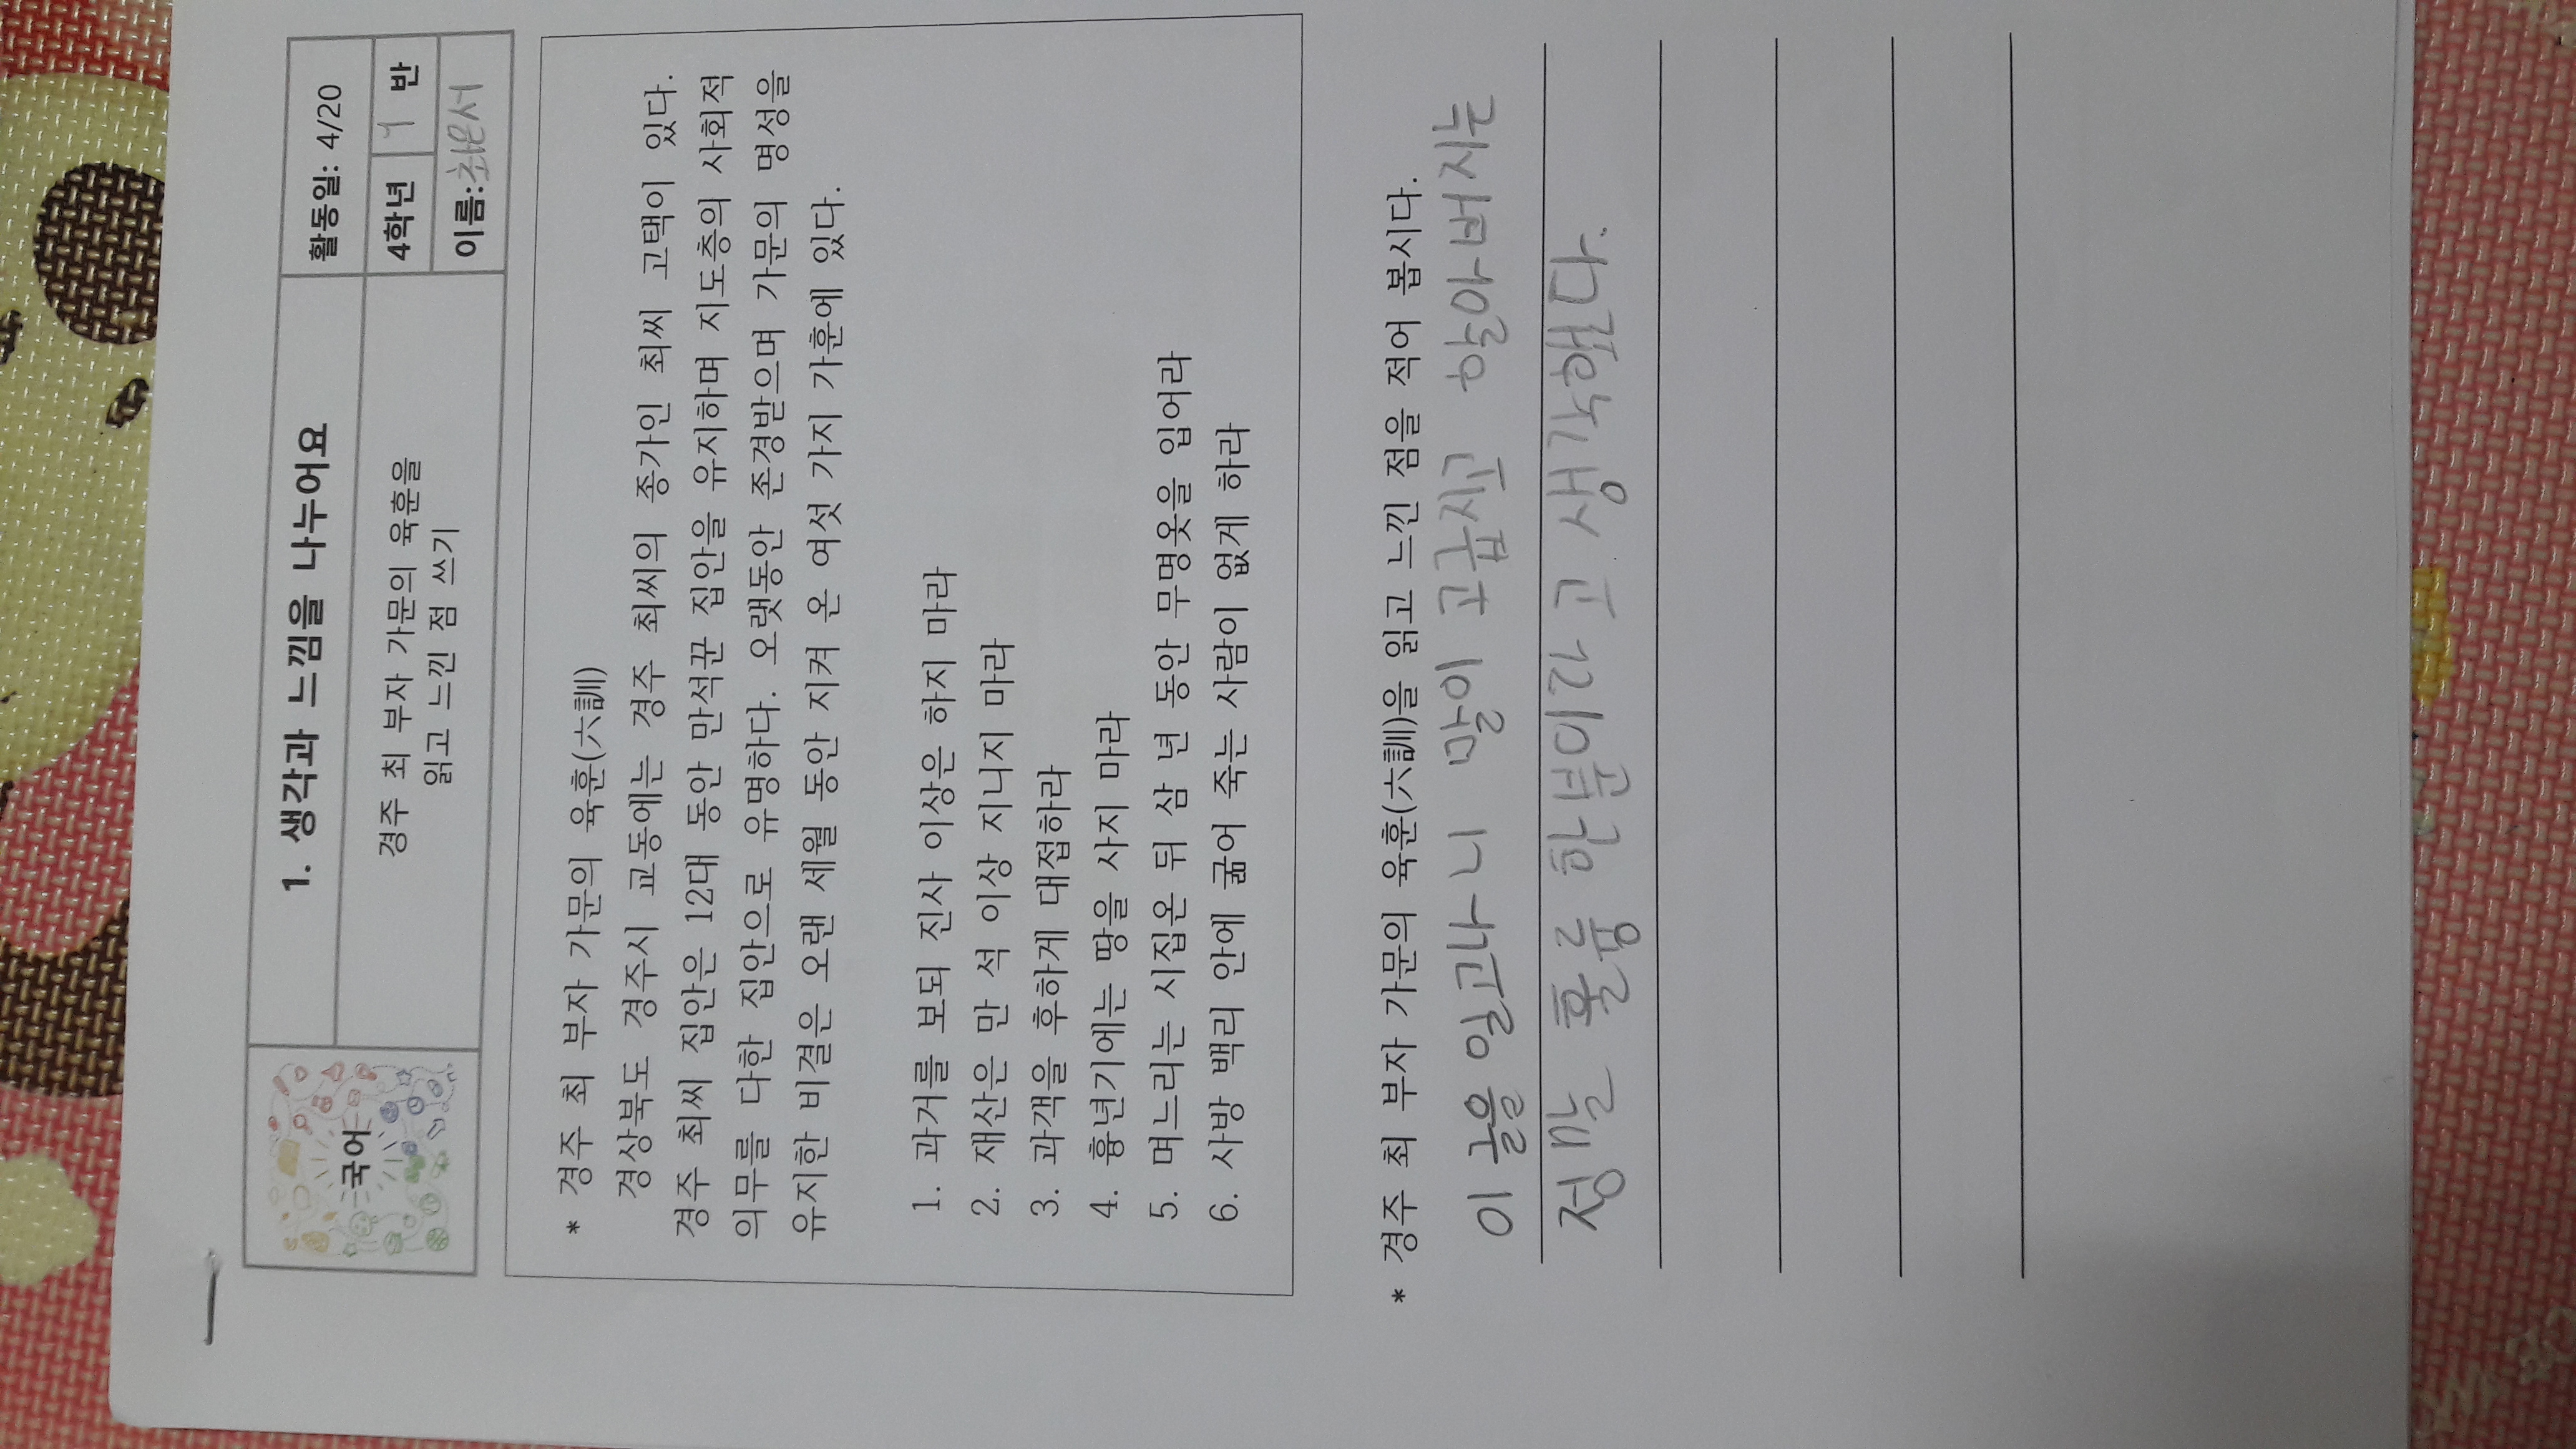 국어
1. 생각과 느낌을 나누어요
활동일: 4/20
경주 최 부자 가문의 육훈을
읽고 느낀 점 쓰기
4학년 1 반
이름:최은서
* 경주 최 부자 가문의 육훈(六訓)
경상북도 경주시 교동에는 경주 최씨의 종가인 최씨 고택이 있다.
경주 최씨 집안은 12대 동안 만석꾼 집안을 유지하며 지도층의 사회적
의무를 다한 집안으로 유명하다. 오랫동안 존경받으며 가문의 명성을
유지한 비결은 오랜 세월 동안 지켜 온 여섯 가지 가훈에 있다.
1. 과거를 보되 진사 이상은 하지 마라
2. 재산은 만 석 이상 지니지 마라
3. 과객을 후하게 대접하라
4. 흉년기에는 땅을 사지 마라
5. 며느리는 시집온 뒤 삼 년 동안 무명옷을 입어라
6. 사방 백리 안에 굶어 죽는 사람이 없게 하라
* 경주 최 부자 가문의 육훈(六訓)을 읽고 느낀 점을 적어 봅시다.
이 글을 일고나니 말이 고급지고 할아버지는
정말 훌륭 한분이라고 생각했다.